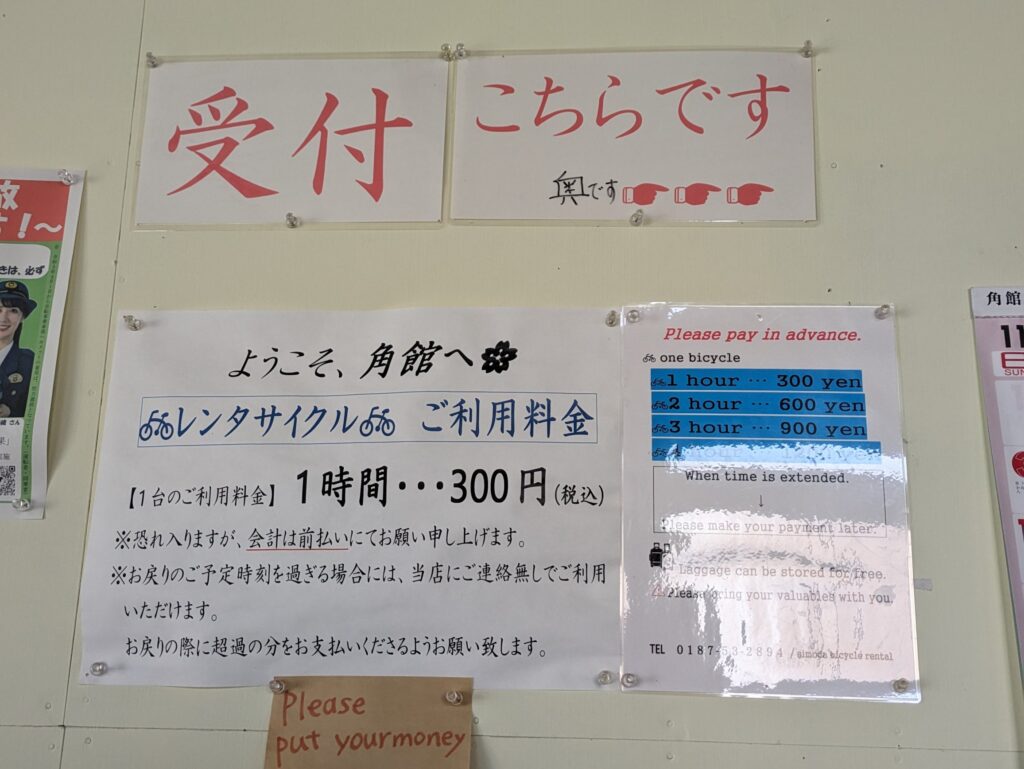 受付
こちらです
奥です
放
!～
きは、必ず
ようこそ、角館へ
レンタサイクル ご利用料金
【1台のご利用料金】 1時間･･･300円(税込)
※恐れ入りますが、会計は前払いにてお願い申し上げます。
※お戻りのご予定時刻を過ぎる場合には、当店にご連絡無しでご利用
いただけます。
お戻りの際に超過の分をお支払いくださるようお願い致します。
Please pay in advance.
one bicycle
1 hour ･･･ 300 yen
2 hour ･･･ 600 yen
3 hour ･･･ 900 yen
When time is extended.
↓
Please make your payment later.
Laggage can be stored for free.
Please bring your valuables with you.
TEL 0187-53-2894 / simoda bicycle rental
Please
put yourmoney
角館
11
SUN